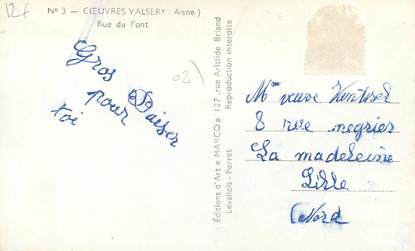 12f
N° 3 - CŒUVRES VALSERY (Aisne)
Rue du Pont
Gros Baiser
pour
toi
02)
Éditions d'Art « MARCO » 127, rue Aristide Briand
Levallois-Perret
Reproduction interdite
Mme veuve
8 rue negrier
La madeleine
Lille
(Nord